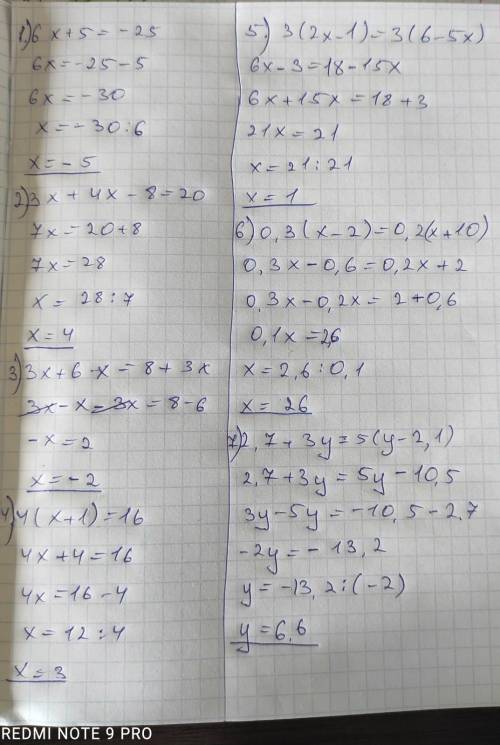 1) 6x+5=-25
6x=-25-5
6x=-30
x=-30:6
x=-5
2) 3x+4x-8=20
7x=20+8
7x=28
x=28:7
x=4
3) 3x+6-x=8+3x
3x-x-3x=8-6
-x=2
x=-2
4) 4(x+1)=16
4x+4=16
4x=16-4
x=12:4
x=3
5) 3(2x-1)=3(6-5x)
6x-3=18-15x
6x+15x=18+3
21x=21
x=21:21
x=1
6) 0,3(x-2)=0,2(x+10)
0,3x-0,6=0,2x+2
0,3x-0,2x=2+0,6
0,1x=2,6
x=2,6:0,1
x=26
7) 2,7+3y=5(y-2,1)
2,7+3y=5y-10,5
3y-5y=-10,5-2,7
-2y=-13,2
y=-13,2:(-2)
y=6,6
REDMI NOTE 9 PRO